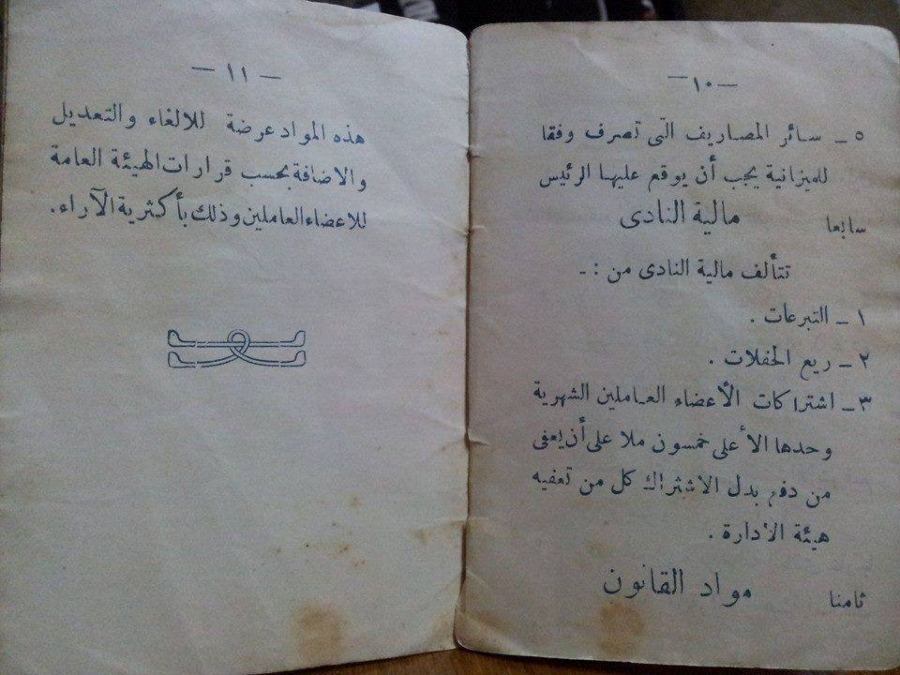 — ١٠ —
٥ ـ سائر المصاريف التى تصرف وفقا
للميزانية يجب أن يوقع عليها الرئيس
سابعا مالية النادى
تتألف مالية النادى من : ـ
١ ـ التبرعات .
٢ ـ ريع الحفلات .
٣ ـ اشتراكات الأعضاء العاملين الشهرية
وحدها الأعلى خمسون ملا على أن يعفى
من دفع بدل الاشتراك كل من تعفيه
هيئة الادارة .
ثامنا مواد القانون
— ١١ —
هذه المواد عرضة للالغاء والتعديل
والاضافة بحسب قرارات الهيئة العامة
للاعضاء العاملين وذلك بأكثرية الآراء.